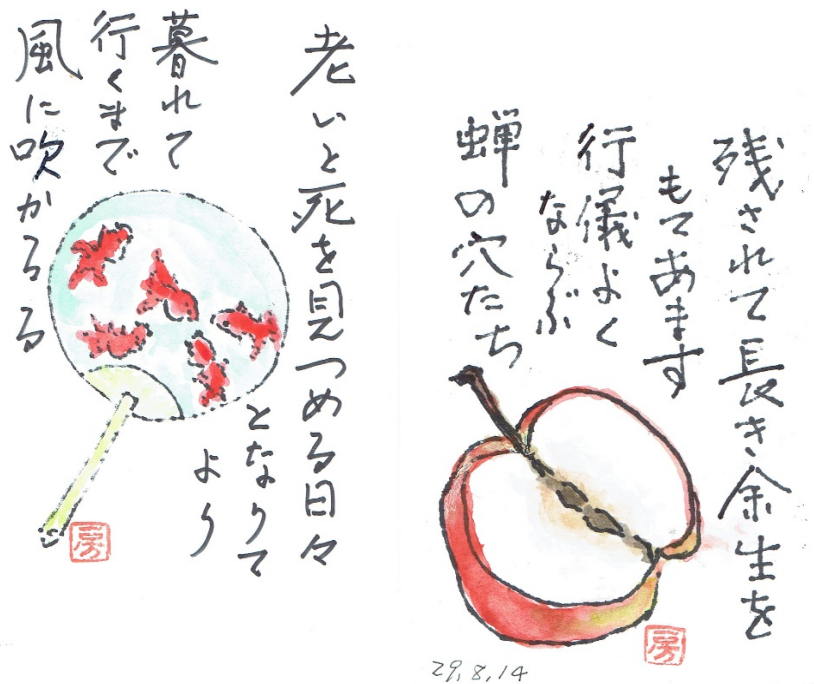 残されて長き余生を
もてあます
行儀よく
ならぶ
蝉の穴たち
房
29.8.14
老いと死を見つめる日々
となりて
より
暮れて
行くまで
風に吹かるる
房